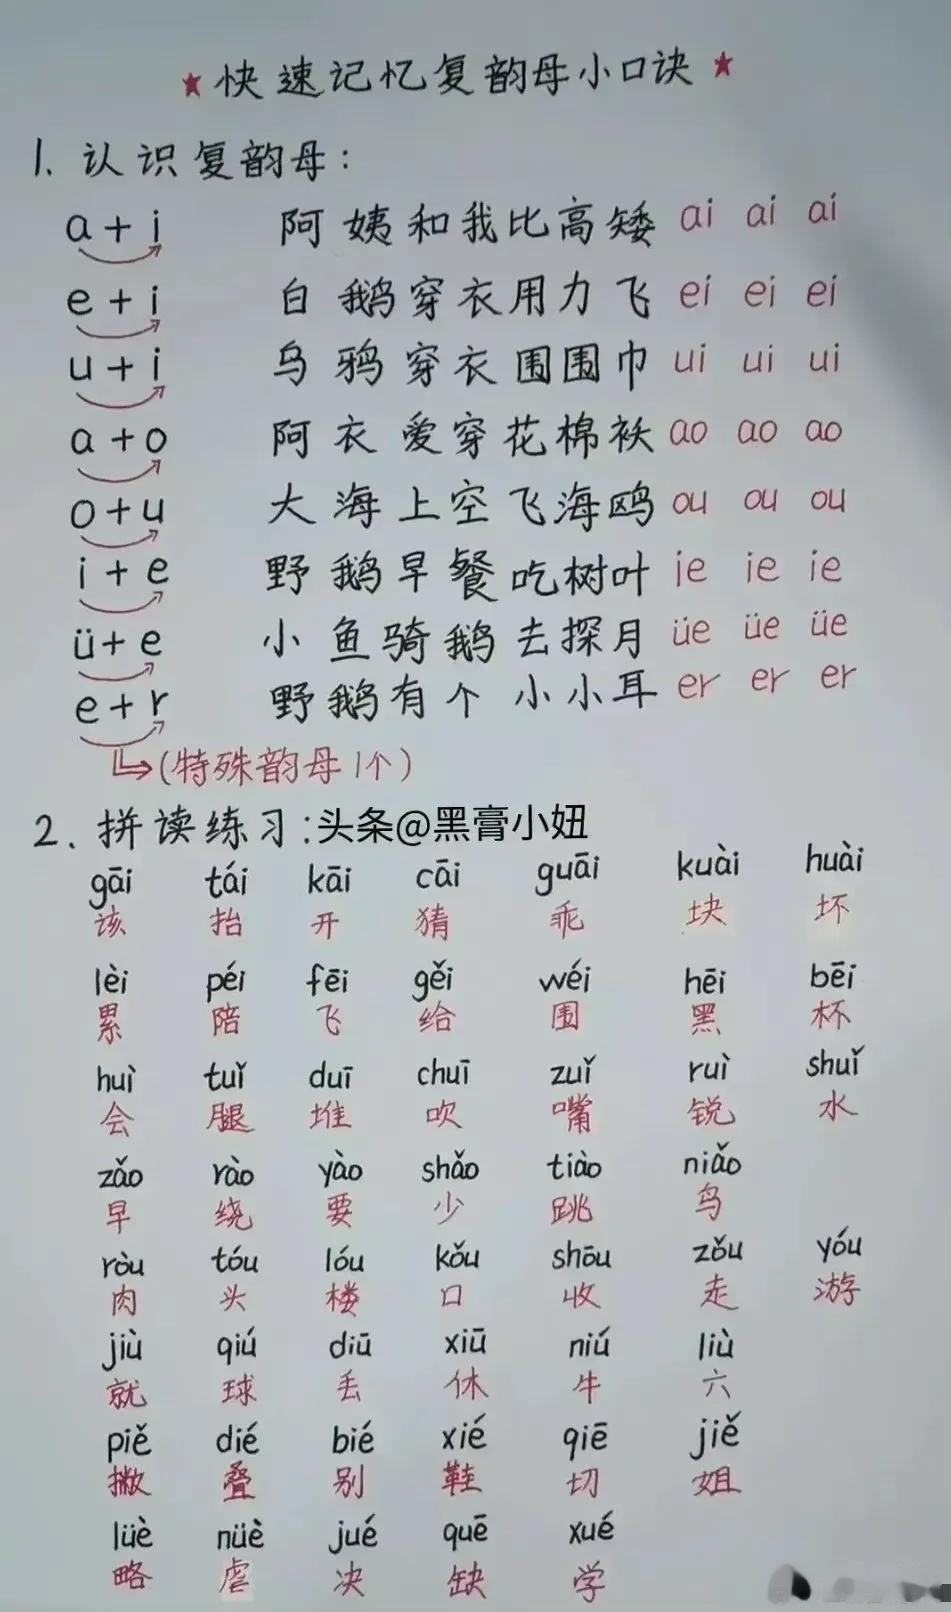 ★快速记忆复韵母小口诀★
1. 认识复韵母:
a+i 阿姨和我比高矮 ai ai ai
e+i 白鹅穿衣用力飞 ei ei ei
u+i 乌鸦穿衣围围巾 ui ui ui
a+o 阿衣爱穿花棉袄 ao ao ao
o+u 大海上空飞海鸥 ou ou ou
i+e 野鹅早餐吃树叶 ie ie ie
ü+e 小鱼骑鹅去探月 üe üe üe
e+r 野鹅有个小小耳 er er er
(特殊韵母1个)
2. 拼读练习:头条@黑膏小妞
gāi tái kāi cāi guāi kuài huài
该 抬 开 猜 乖 块 坏
lèi péi fēi gěi wéi hēi bēi
累 陪 飞 给 围 黑 杯
huì tuǐ duī chuī zuǐ ruì shuǐ
会 腿 堆 吹 嘴 锐 水
zǎo rào yào shǎo tiào niǎo
早 绕 要 少 跳 鸟
ròu tóu lóu kǒu shōu zǒu yóu
肉 头 楼 口 收 走 游
jiù qiú diū xiū niú liù
就 球 丢 休 牛 六
piě dié bié xié qiē jiě
撇 叠 别 鞋 切 姐
lüè nüè jué quē xué
略 虐 决 缺 学